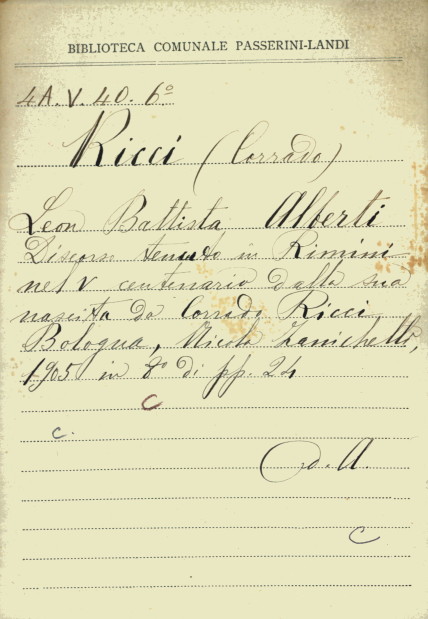 BIBLIOTECA COMUNALE PASSERINI-LANDI
4A.V.40.6º
Ricci (Corrado)
Leon Battista Alberti
Discorso tenuto in Rimini
nel V centenario dalla sua
nascita da Corrado Ricci,
Bologna, Nicola Zanichelli,
1905 in 8º di pp. 24
C
c.
d. A.
C